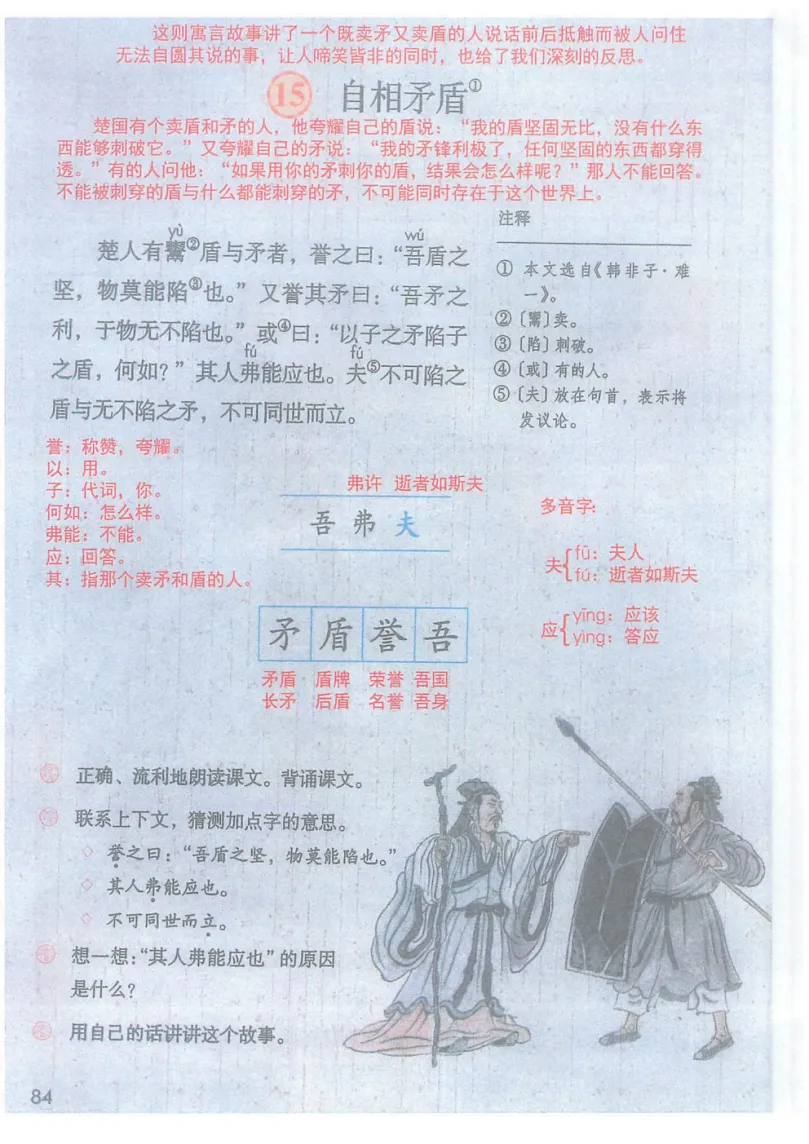 这则寓言故事讲了一个既卖矛又卖盾的人说话前后抵触而被人问住
无法自圆其说的事，让人啼笑皆非的同时，也给了我们深刻的反思。
15 自相矛盾①
楚国有个卖盾和矛的人，他夸耀自己的盾说：“我的盾坚固无比，没有什么东
西能够刺破它。”又夸耀自己的矛说：“我的矛锋利极了，任何坚固的东西都穿得
透。”有的人问他：“如果用你的矛刺你的盾，结果会怎么样呢？”那人不能回答。
不能被刺穿的盾与什么都能刺穿的矛，不可能同时存在于这个世界上。
yù wú
楚人有鬻②盾与矛者，誉之曰：“吾盾之
坚，物莫能陷③也。”又誉其矛曰：“吾矛之
利，于物无不陷也。”或④曰：“以子之矛陷子
fú fú
之盾，何如？”其人弗能应也。夫⑤不可陷之
盾与无不陷之矛，不可同世而立。
注释
① 本文选自《韩非子·难
一》。
②〔鬻〕卖。
③〔陷〕刺破。
④〔或〕有的人。
⑤〔夫〕放在句首，表示将
发议论。
誉：称赞，夸耀。
以：用。
子：代词，你。
何如：怎么样。
弗能：不能。
应：回答。
其：指那个卖矛和盾的人。
弗许 逝者如斯夫
吾 弗 夫
多音字：
夫{fū：夫人
fú：逝者如斯夫
应{yīng：应该
yìng：答应
矛 盾 誉 吾
矛盾 盾牌 荣誉 吾国
长矛 后盾 名誉 吾身
正确、流利地朗读课文。背诵课文。
联系上下文，猜测加点字的意思。
◇ 誉之曰：“吾盾之坚，物莫能陷也。”
◇ 其人弗能应也。
◇ 不可同世而立。
想一想：“其人弗能应也”的原因
是什么？
用自己的话讲讲这个故事。
84